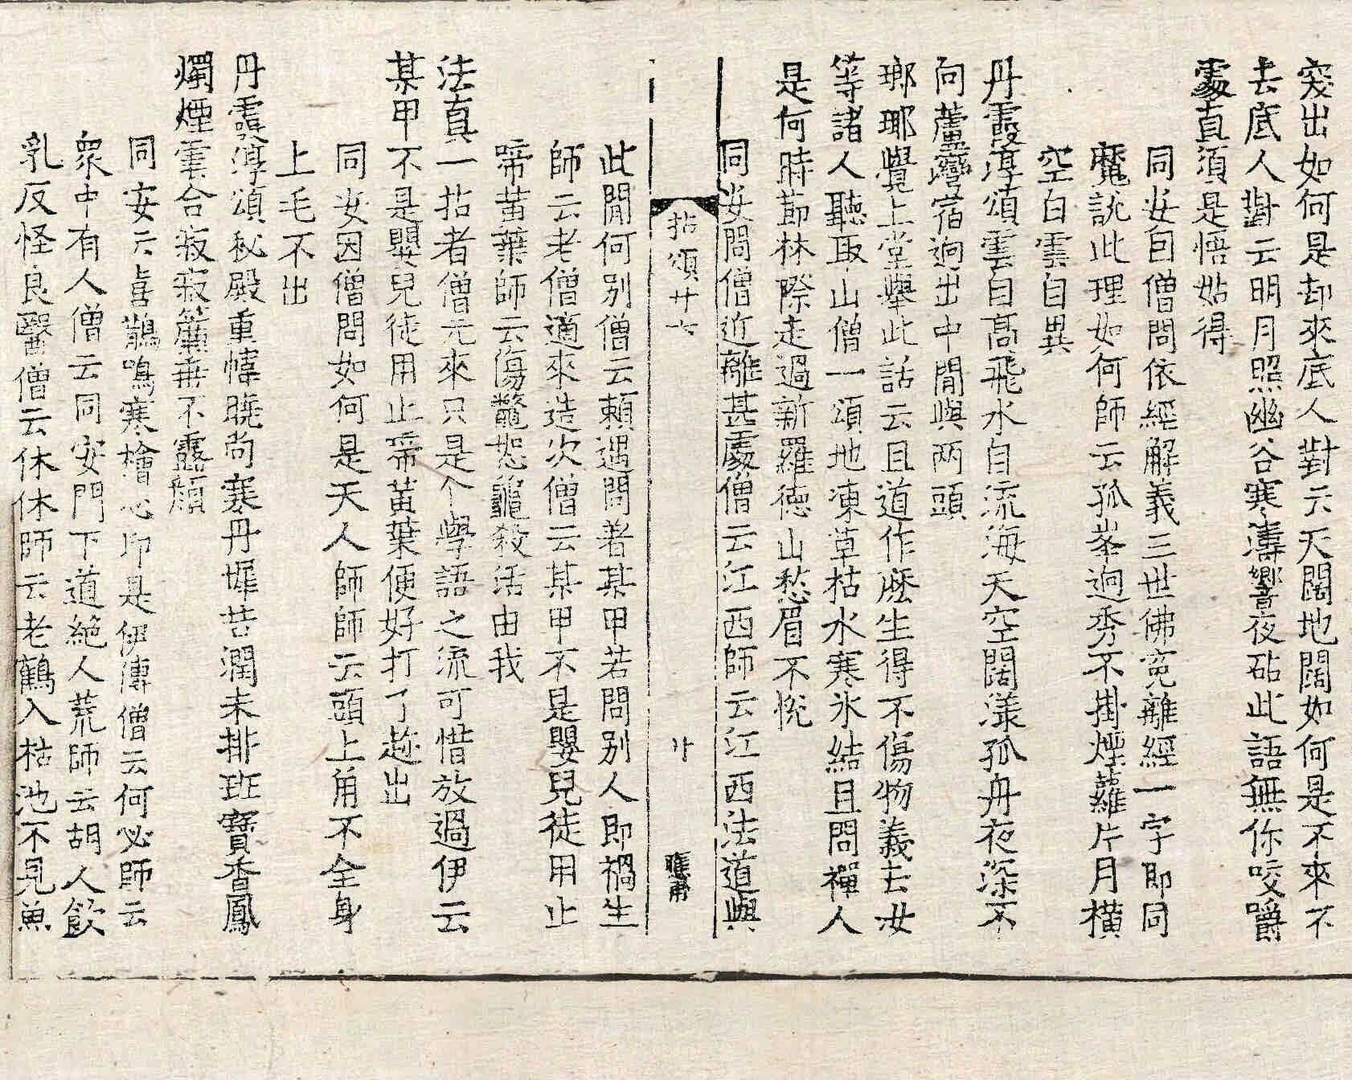 突出如何是却來底人對云天闊地闊如何是不來不
去底人對云明月照幽谷寒濤響夜砧此語無你咬嚼
處直須是悟始得
同安因僧問依經解義三世佛寃離經一字即同
魔說此理如何師云孤峯逈秀不掛煙蘿片月橫
空白雲自異
丹霞淳頌雲自高飛水自流海天空闊漾孤舟夜深不
向蘆灣宿逈出中間與兩頭
瑯琊覺上堂擧此話云且道作麽生得不傷物義去汝
等諸人聽取山僧一頌地凍草枯水寒氷結且問禪人
是何時節林際走過新羅德山愁眉不悅
同安問僧近離甚處僧云江西師云江西法道與
拈頌廿七
此間何別僧云賴遇問著某甲若問別人即禍生
師云老僧適來造次僧云某甲不是嬰兒徒用止
啼黃葉師云傷鼈恕龜殺活由我
法真一拈者僧元來只是个學語之流可惜放過伊云
某甲不是嬰兒徒用止啼黃葉便好打了趂出
同安因僧問如何是天人師師云頭上角不全身
上毛不出
丹霞淳頌秘殿重幃曉尚寒丹墀苔潤未排班寶香鳳
燭煙雲合寂寂簾垂不露顏
同安云喜鵲鳴寒檜心印是伊傳僧云何必師云
衆中有人僧云同安門下道絕人荒師云胡人飮
乳反怪良醫僧云休休師云老鶴入枯池不見魚